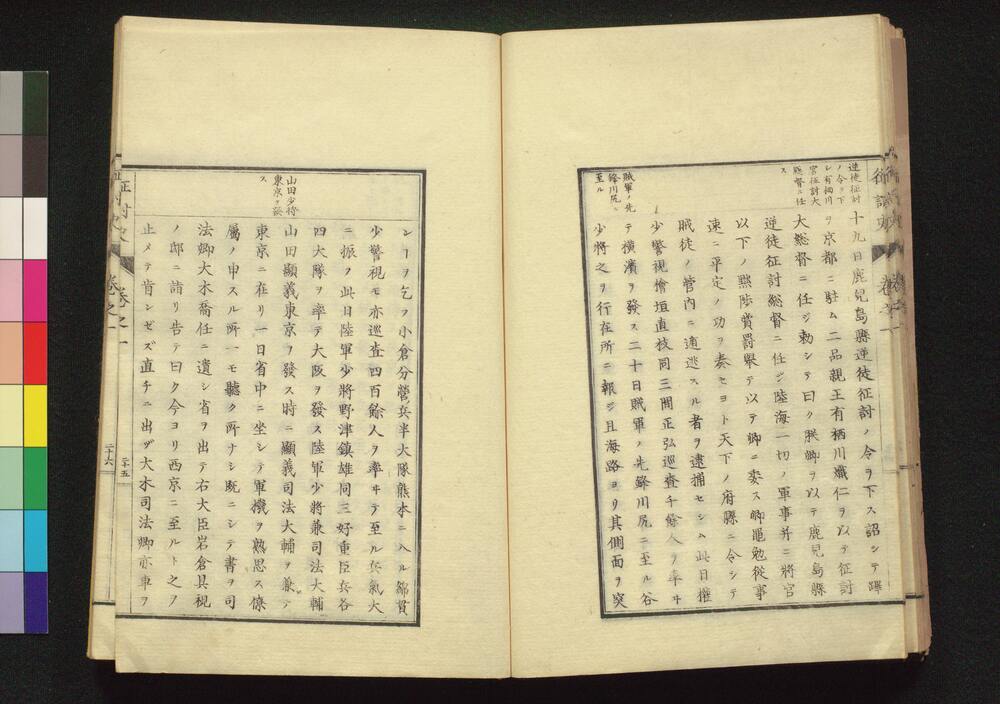 征討史
卷之一
逆徒征討
ノ令ヲ下
シ有栖川
宮征討大
總督ニ任
ス
十九日鹿兒島縣逆徒征討ノ令ヲ下ス詔シテ蹕
ヲ京都ニ駐ム二品親王有栖川熾仁ヲ以テ征討
大總督ニ任ジ勅シテ曰ク朕卿ヲ以テ鹿兒島縣
逆徒征討總督ニ任ジ陸海一切ノ軍事并ニ將官
以下ノ黜陟賞罰擧テ以テ卿ニ委ス卿黽勉從事
速ニ平定ノ功ヲ奏セヨト天下ノ府縣ニ令シテ
賊徒ノ管内ニ逋逃スル者ヲ逮捕セシム此日權
少警視檜垣直枝同三間正弘巡査千餘人ヲ率ヰ
賊軍ノ先
鋒川尻ニ
至ル
テ横濱ヲ發ス二十日賊軍ノ先鋒川尻ニ至ル谷
少將之ヲ行在所ニ報ジ且海路ヨリ其側面ヲ突
シ一ヲ乞フ小倉分營兵半大隊熊本ニ入ル綿貫
少警視モ亦巡査四百餘人ヲ率ヰテ至ル兵氣大
ニ振フ此日陸軍少將野津鎮雄同三好重臣兵各
四大隊ヲ率テ大阪ヲ發ス陸軍少將兼司法大輔
山田少將
東京ヲ發
ス
山田顯義東京ヲ發ス時ニ顯義司法大輔ヲ兼テ
東京ニ在リ一日省中ニ坐シテ軍機ヲ熟思ス僚
屬ノ申スル所一モ聽ク所ナシ既ニシテ書ヲ司
法卿大木喬任ニ遺シ省ヲ出テ右大臣岩倉具視
ノ邸ニ詣リ告テ曰ク今ヨリ西京ニ至ルト之ヲ
止メテ肯ンゼズ直チニ出ヅ大木司法卿亦車ヲ
征討史
卷之一
二十五
二十六